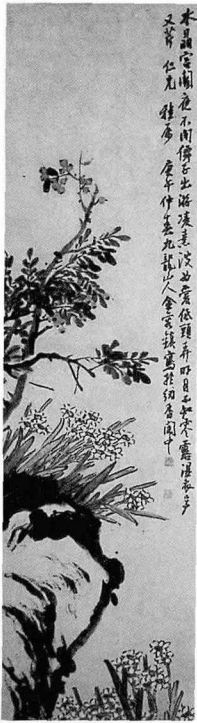 水晶宮闕夜不閉僊子出游凌素波低頭弄明月不知寒露湿衣多
又芹仁兄雅屬庚午仲春九龍山人金鎮寫於紉香閣中